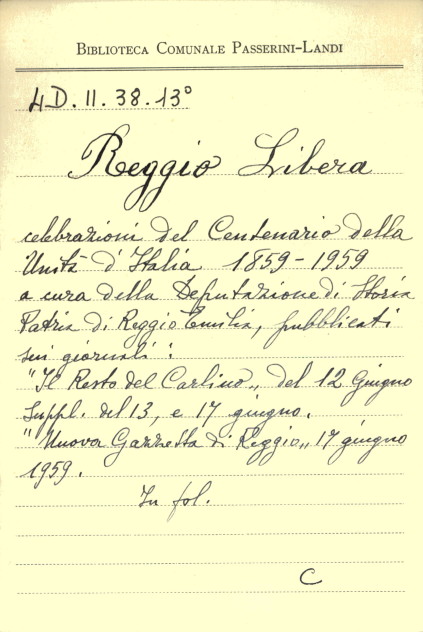 BIBLIOTECA COMUNALE PASSERINI-LANDI
4D.II.38.13°
Reggio Libera
celebrazioni del Centenario della
Unità d'Italia 1859-1959
a cura della Deputazione di Storia
Patria di Reggio Emilia, pubblicati
sui giornali:
"Il Resto del Carlino„ del 12 Giugno
Suppl. del 13, e 17 giugno.
"Nuova Gazzetta di Reggio„ 17 giugno
1959.
In fol.
C